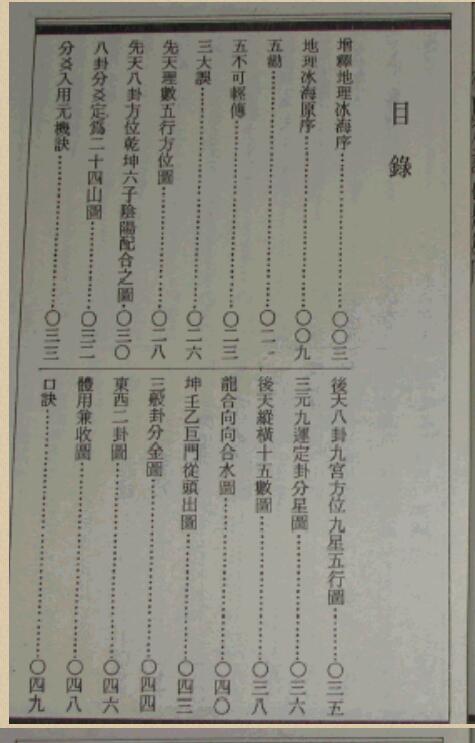 目錄
增釋地理冰海序……〇〇三
地理冰海原序……〇〇九
五勸……〇二一
五不可輕傳……〇二三
三大誤……〇二六
先天理數五行方位圖……〇二八
先天八卦方位乾坤六子陰陽配合之圖…〇三〇
八卦分爻定為二十四山圖……〇三二
分爻入用元機訣……〇三三
後天八卦九宮方位九星五行圖……〇三五
三元九運定卦分星圖……〇三六
後天縱橫十五數圖……〇三八
龍合向向合水圖……〇四〇
坤壬乙巨門從頭出圖……〇四三
三般卦分金圖……〇四四
東西二卦圖……〇四六
體用兼收圖……〇四八
口訣……〇四九